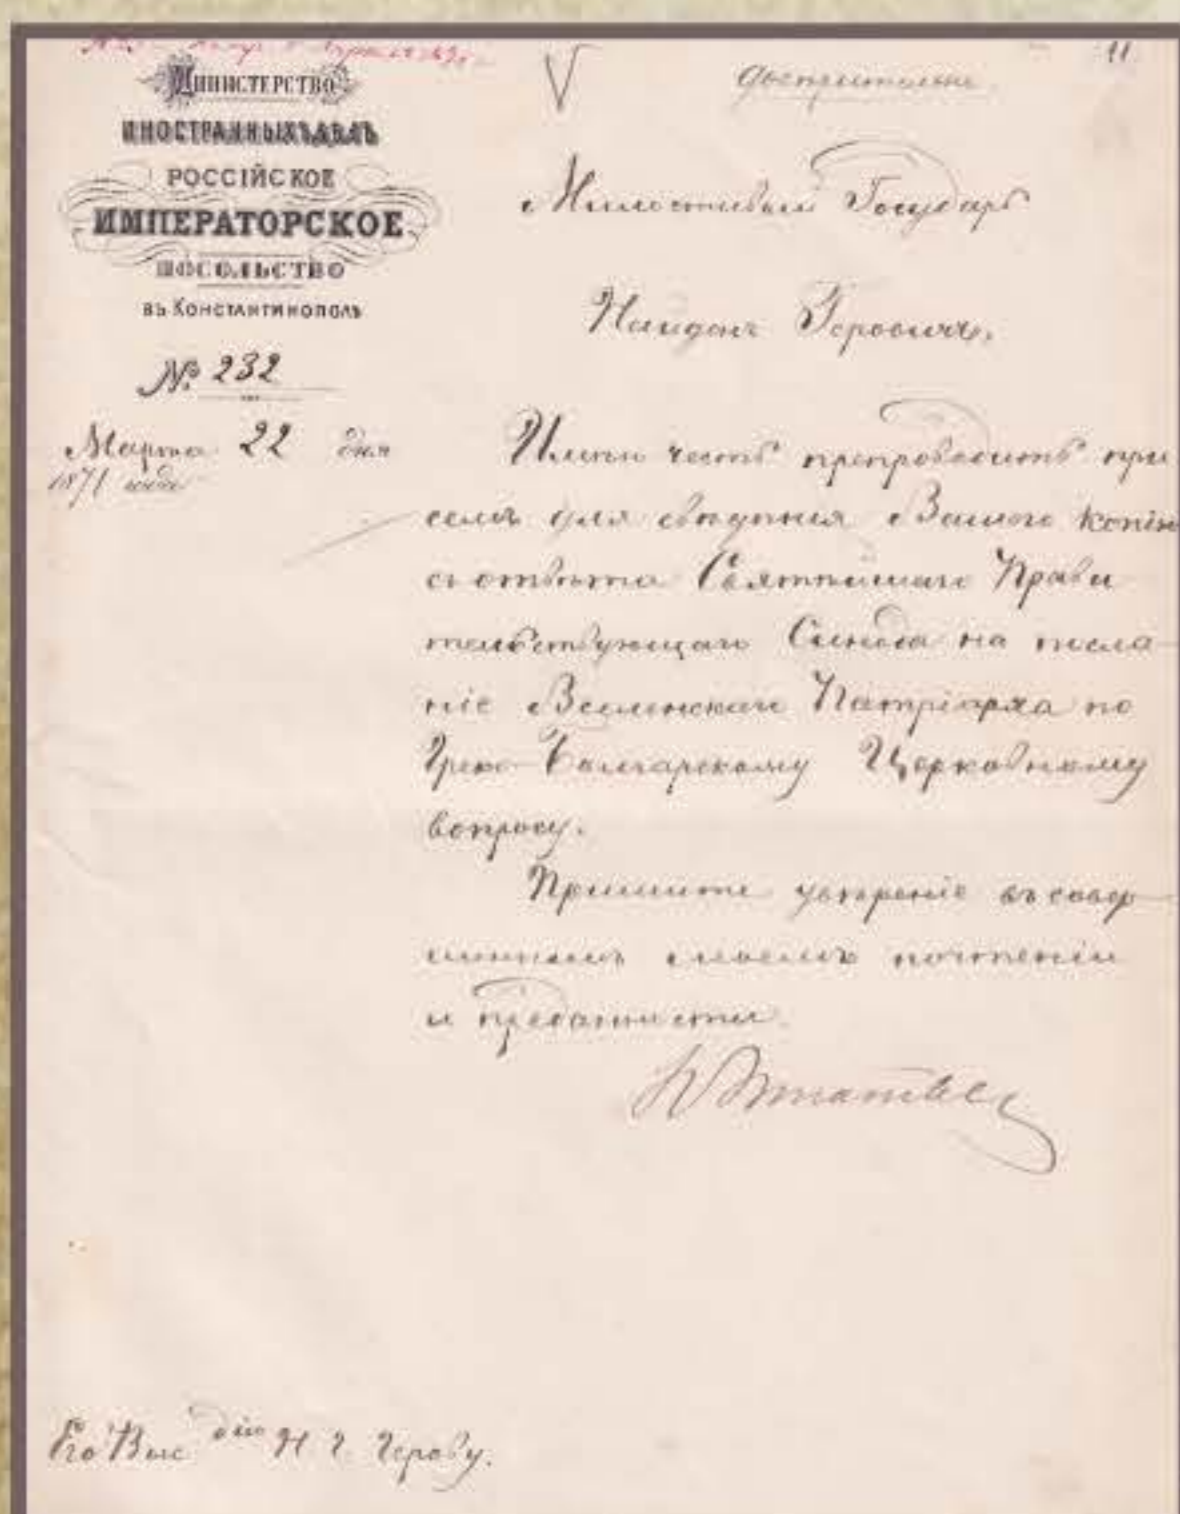 11
Министерство
иностранныхъ дѣлъ
россійское
императорское
посольство
въ Константинополѣ
№ 232
Марта 22 дня
1871 года
Милостивый Государь
Найденъ Геровичъ,
Имѣю честь препроводить при
семъ для свѣдѣнія Вашего копію
съ отвѣта Святѣйшаго Прави
тельствующаго Синода на посла
ніе Вселенскаго Патріарха по
Греко-Болгарскому Церковному
вопросу.
Примите увѣреніе въ совер
шенномъ моемъ почтеніи
и преданности.
Н Игнатьев
Его Выс дію Н. Г. Герову.